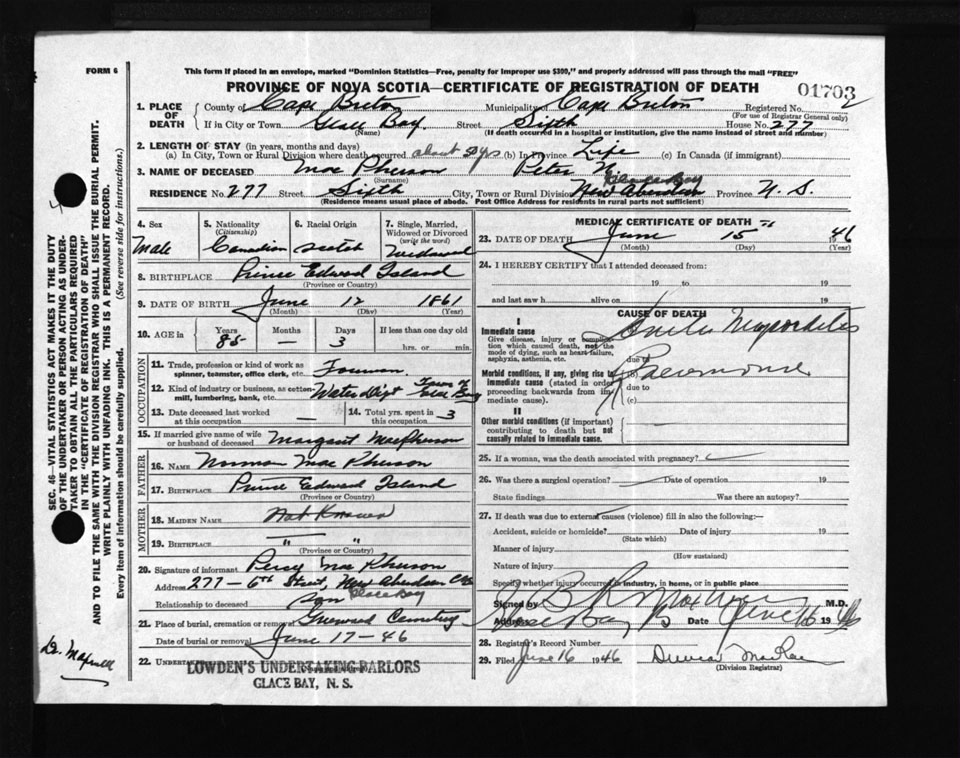 FORM 6
This form if placed in an envelope, marked "Dominion Statistics—Free, penalty for improper use $300," and properly addressed will pass through the mail "FREE"
PROVINCE OF NOVA SCOTIA—CERTIFICATE OF REGISTRATION OF DEATH
01703
SEC. 46—VITAL STATISTICS ACT MAKES IT THE DUTY
OF THE UNDERTAKER OR PERSON ACTING AS UNDER-
TAKER TO OBTAIN ALL THE PARTICULARS REQUIRED
IN THE "CERTIFICATE OF REGISTRATION OF DEATH"
AND TO FILE THE SAME WITH THE DIVISION REGISTRAR WHO SHALL ISSUE THE BURIAL PERMIT.
WRITE PLAINLY WITH UNFADING INK. THIS IS A PERMANENT RECORD.
Every item of information should be carefully supplied. (See reverse side for instructions.)
1. PLACE OF DEATH
County of Cape Breton Municipality of Cape Breton Registered No.
(For use of Registrar General only)
If in City or Town Glace Bay. Street Sixth House No. 277
(Name) (If death occurred in a hospital or institution, give the name instead of street and number)
2. LENGTH OF STAY (in years, months and days)
(a) In City, Town or Rural Division where death occurred about 50 yrs (b) In Province Life (c) In Canada (if immigrant)
3. NAME OF DECEASED Mac Pherson Peter N.
(Surname)
Glace Bay
RESIDENCE No. 277 Street Sixth City, Town or Rural Division New Aberdeen Province N. S.
(Residence means usual place of abode. Post Office Address for residents in rural parts not sufficient)
4. Sex
Male
5. Nationality
(Citizenship)
Canadian
6. Racial Origin
Scotch
7. Single, Married,
Widowed or Divorced
(write the word)
Widowed
8. BIRTHPLACE Prince Edward Island
(Province or Country)
9. DATE OF BIRTH June 12 1861
(Month) (Day) (Year)
10. AGE in
Years Months Days If less than one day old
85 — 3 hrs. or min.
OCCUPATION
11. Trade, profession or kind of work as
spinner, teamster, office clerk, etc. Foreman.
12. Kind of industry or business, as cotton-
mill, lumbering, bank, etc. Water Dept Town of Glace Bay
13. Date deceased last worked
at this occupation —
14. Total yrs. spent in
this occupation 3
15. If married give name of wife
or husband of deceased Margaret MacPherson
FATHER
16. NAME Norman Mac Pherson
17. BIRTHPLACE Prince Edward Island
(Province or Country)
MOTHER
18. MAIDEN NAME Not Known
19. BIRTHPLACE " "
(Province or Country)
20. Signature of informant Percy Mac Pherson
Address 277 - 6th Street, New Aberdeen
Glace Bay
Relationship to deceased son
21. Place of burial, cremation or removal Greenwood Cemetery
Date of burial or removal June 17-46
22. UNDERTAKER
LOWDEN'S UNDERTAKING PARLORS
GLACE BAY, N. S.
MEDICAL CERTIFICATE OF DEATH
23. DATE OF DEATH June 15th 1946
(Month) (Day) (Year)
24. I HEREBY CERTIFY that I attended deceased from:
19 to 19
and last saw h alive on 19
CAUSE OF DEATH
I
Immediate cause
Give disease, injury or complica-
tion which caused death, not the
mode of dying, such as heart failure,
asphyxia, asthenia, etc.
due to
Morbid conditions, if any, giving rise to
immediate cause (stated in order
proceeding backwards from im-
mediate cause).
due to
(c)
II
Other morbid conditions (if important)
contributing to death but not
causally related to immediate cause.
25. If a woman, was the death associated with pregnancy?
26. Was there a surgical operation? Date of operation 19
State findings Was there an autopsy?
27. If death was due to external causes (violence) fill in also the following:—
Accident, suicide or homicide? Date of injury 19
(State which)
Manner of injury
(How sustained)
Nature of injury
Specify whether injury occurred in industry, in home, or in public place
Signed by M.D.
Address Glace Bay Date June 16 1946
28. Registrar's Record Number
29. Filed June 16 1946 MacRae
(Division Registrar)